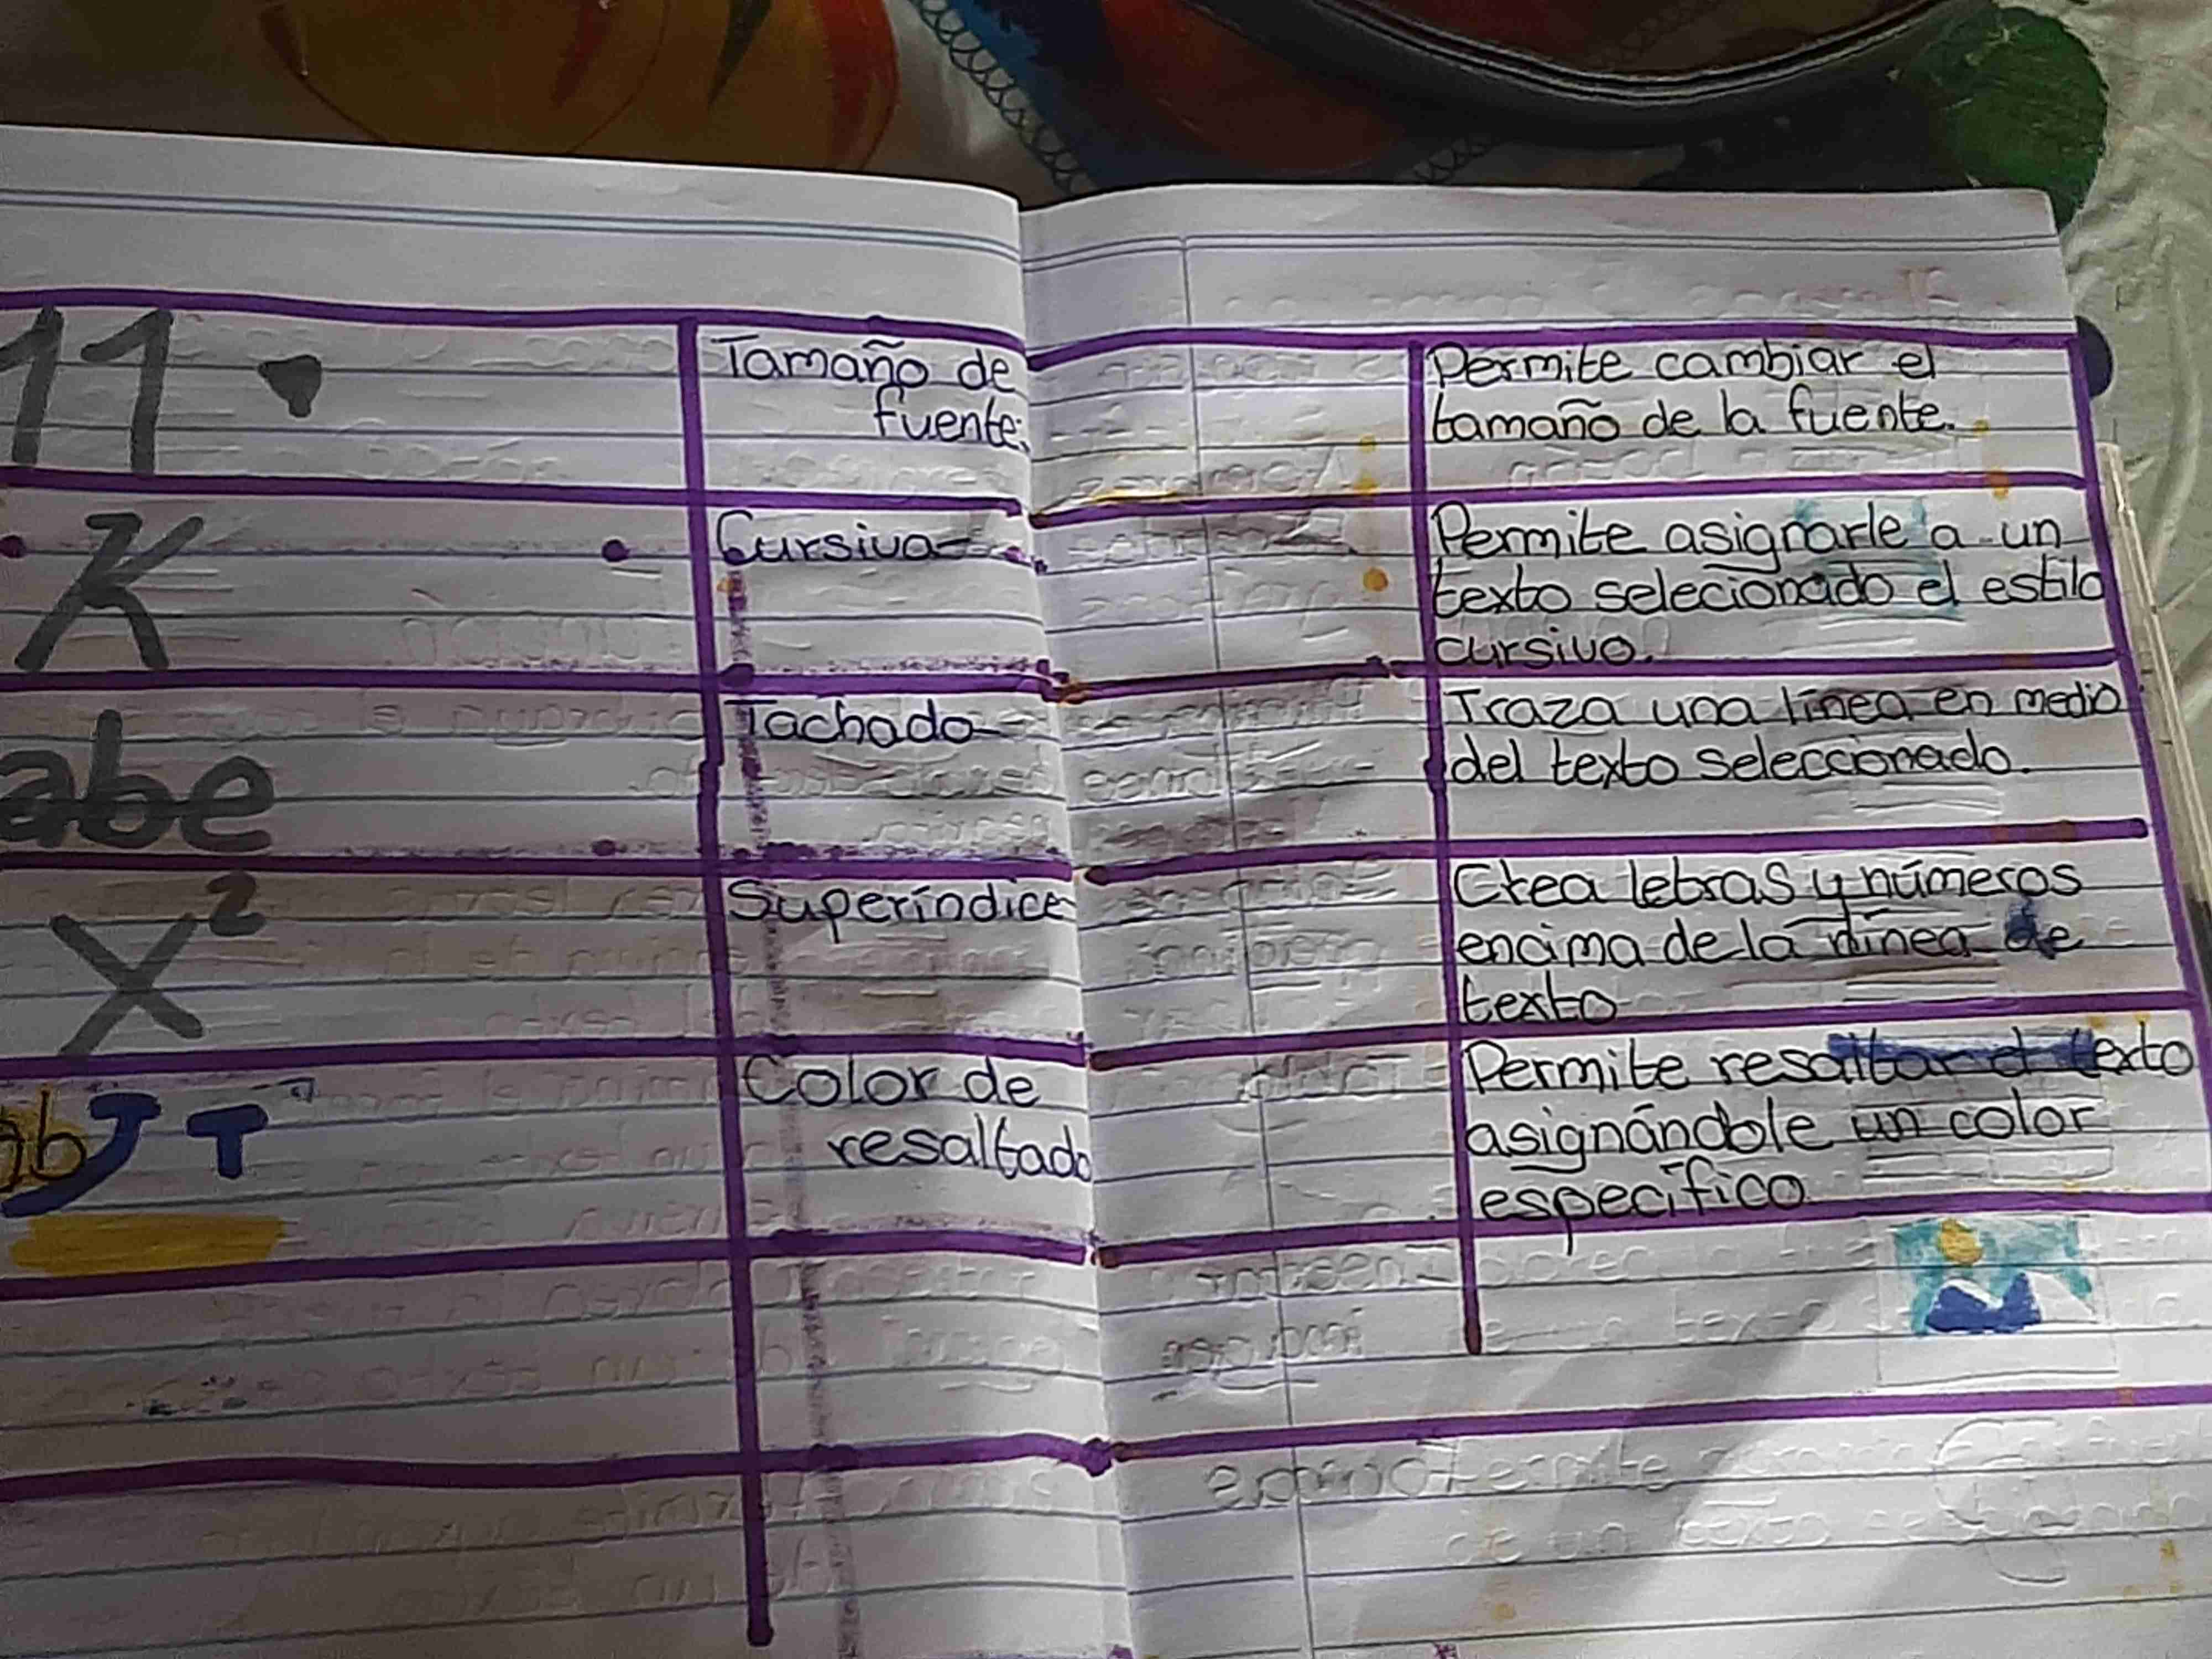 11
Tamaño de
fuente.
Permite cambiar el
tamaño de la fuente.
K
Cursiva
Permite asignarle a un
texto selecionado el estilo
cursivo.
abe
Tachado
Traza una línea en medio
del texto seleccionado.
X²
Superíndice
Crea letras y números
encima de la nínea de
texto
ab
Color de
resaltado
Permite resaltar el texto
asignándole un color
específico.